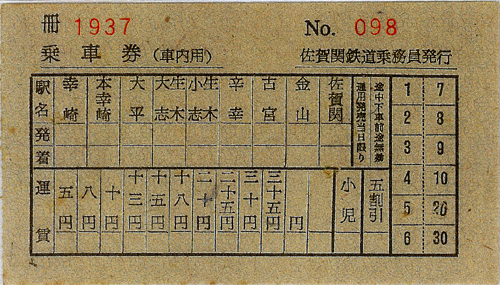 冊 1937
No. 098
乗車券(車内用)
佐賀関鉄道乗務員発行
駅名発着
幸崎
本幸崎
大平
大志生木
小志生木
辛幸
古宮
金山
佐賀関
途中下車前途無効
通用発売当日限り
運賃
五円
八円
十円
十三円
十五円
十八円
二十円
二十五円
三十円
三十五円
円
小児
五割引
1 7
2 8
3 9
4 10
5 20
6 30